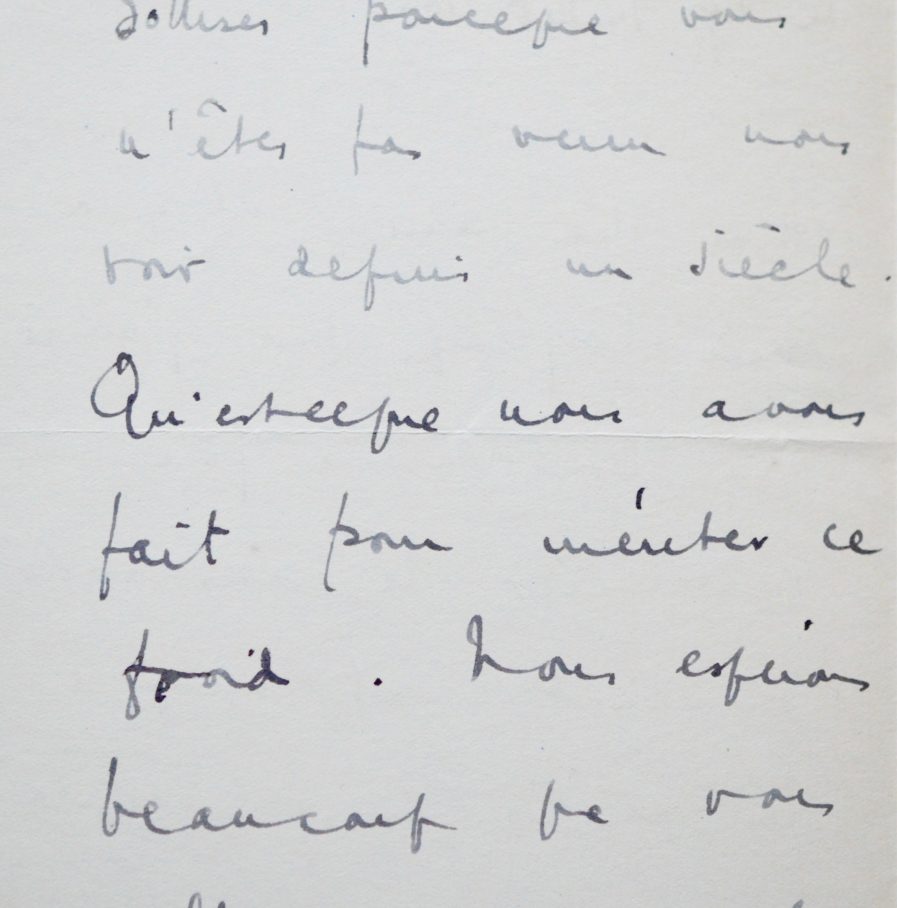 sottises parceque vous
n'êtes pas venu nous
voir depuis un siècle.
Qu'estceque nous avons
fait pour mériter ce
froid. Nous espérons
beaucoup que vous